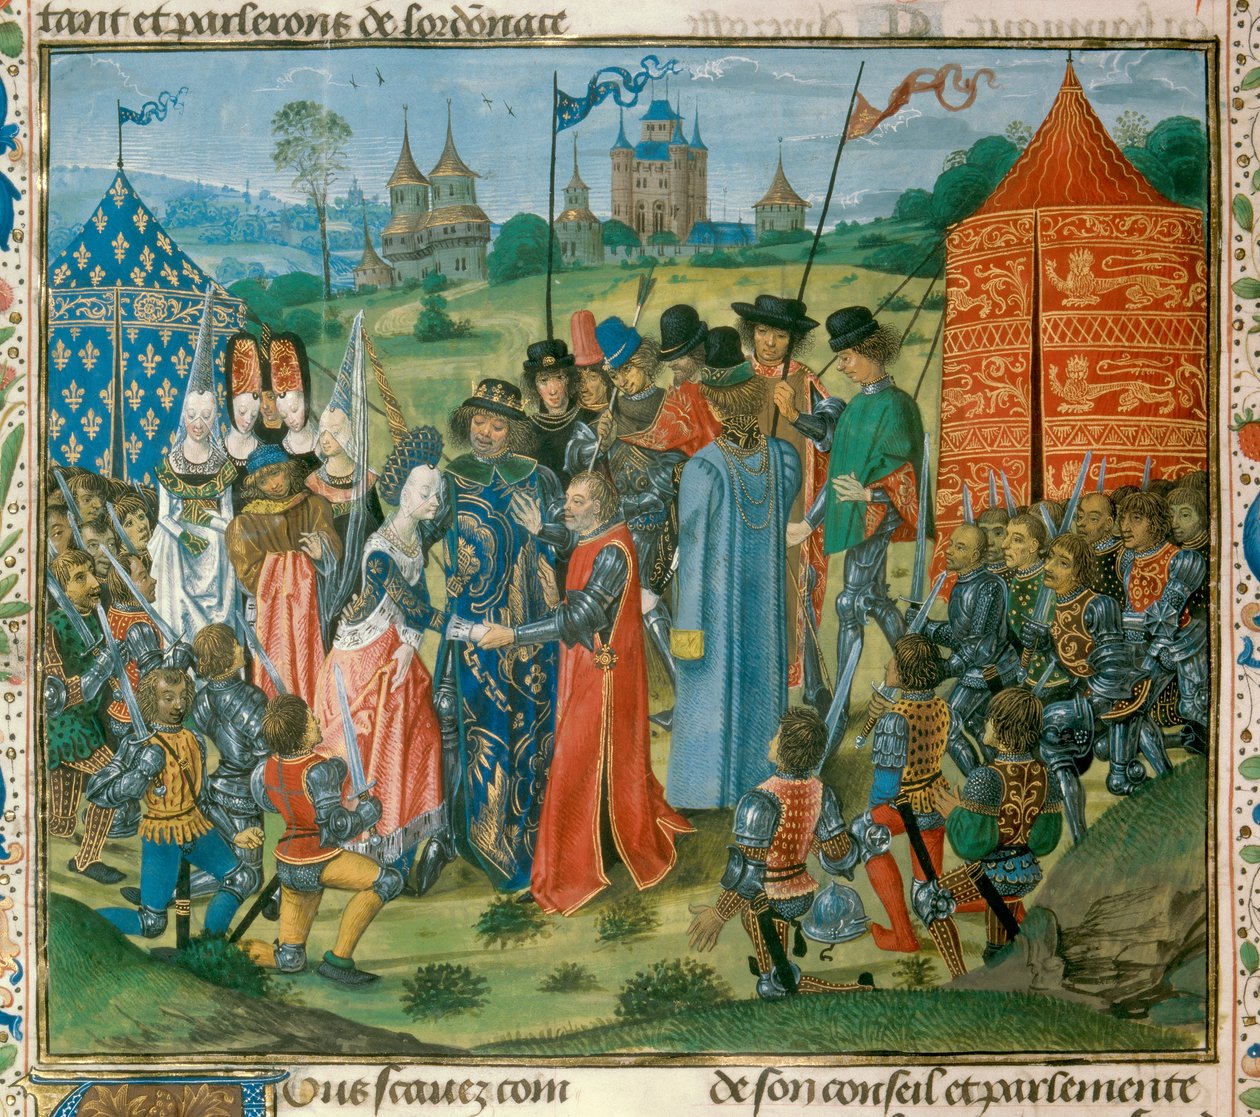 tant et parlerons de lordōnace
Ous scauez com
de son conseil et parlemente